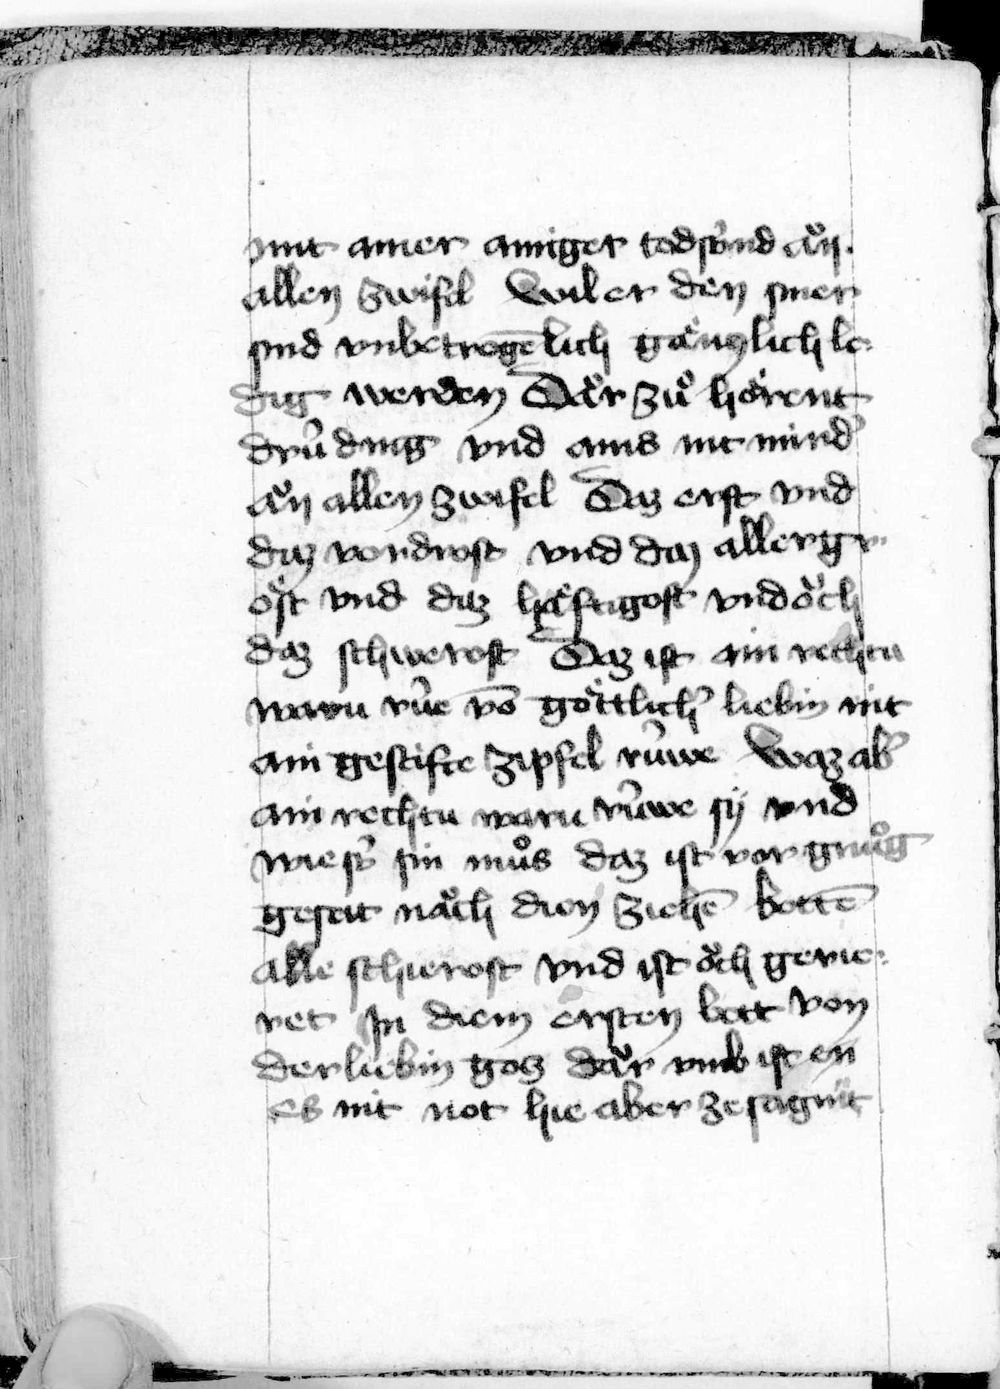 mit ainer ainiger todsünd aͧn
allen zwifel Wil er den siner
sind vnbetrogēlich gaͤnczlich le
dig werden Daͧr zuͦ hoͤrent
drü ding vnd ains nit mindˀ
aͧn allen zwifel Daz erst vnd
daz vordrost vnd daz allergr
oͤst vnd daz haͤftigost vnd oͧch
daz schwerost Daz ist ain rechtu
waru rüe võ goͤttlichˀ liebin nit
ain gestifte zipfel rüwe Waz abˀ
ain rechtu waru rüwe sÿ vnd
wie sü sin muͦs daz ist vor gnuͦg
geseit naͧch dien ziehē bottē
alle schierost vnd ist oͧch gerue
ret In diem ersten bott von
der liebin gotz daͧr vmb ist en
es nit not hie aber ze sagint